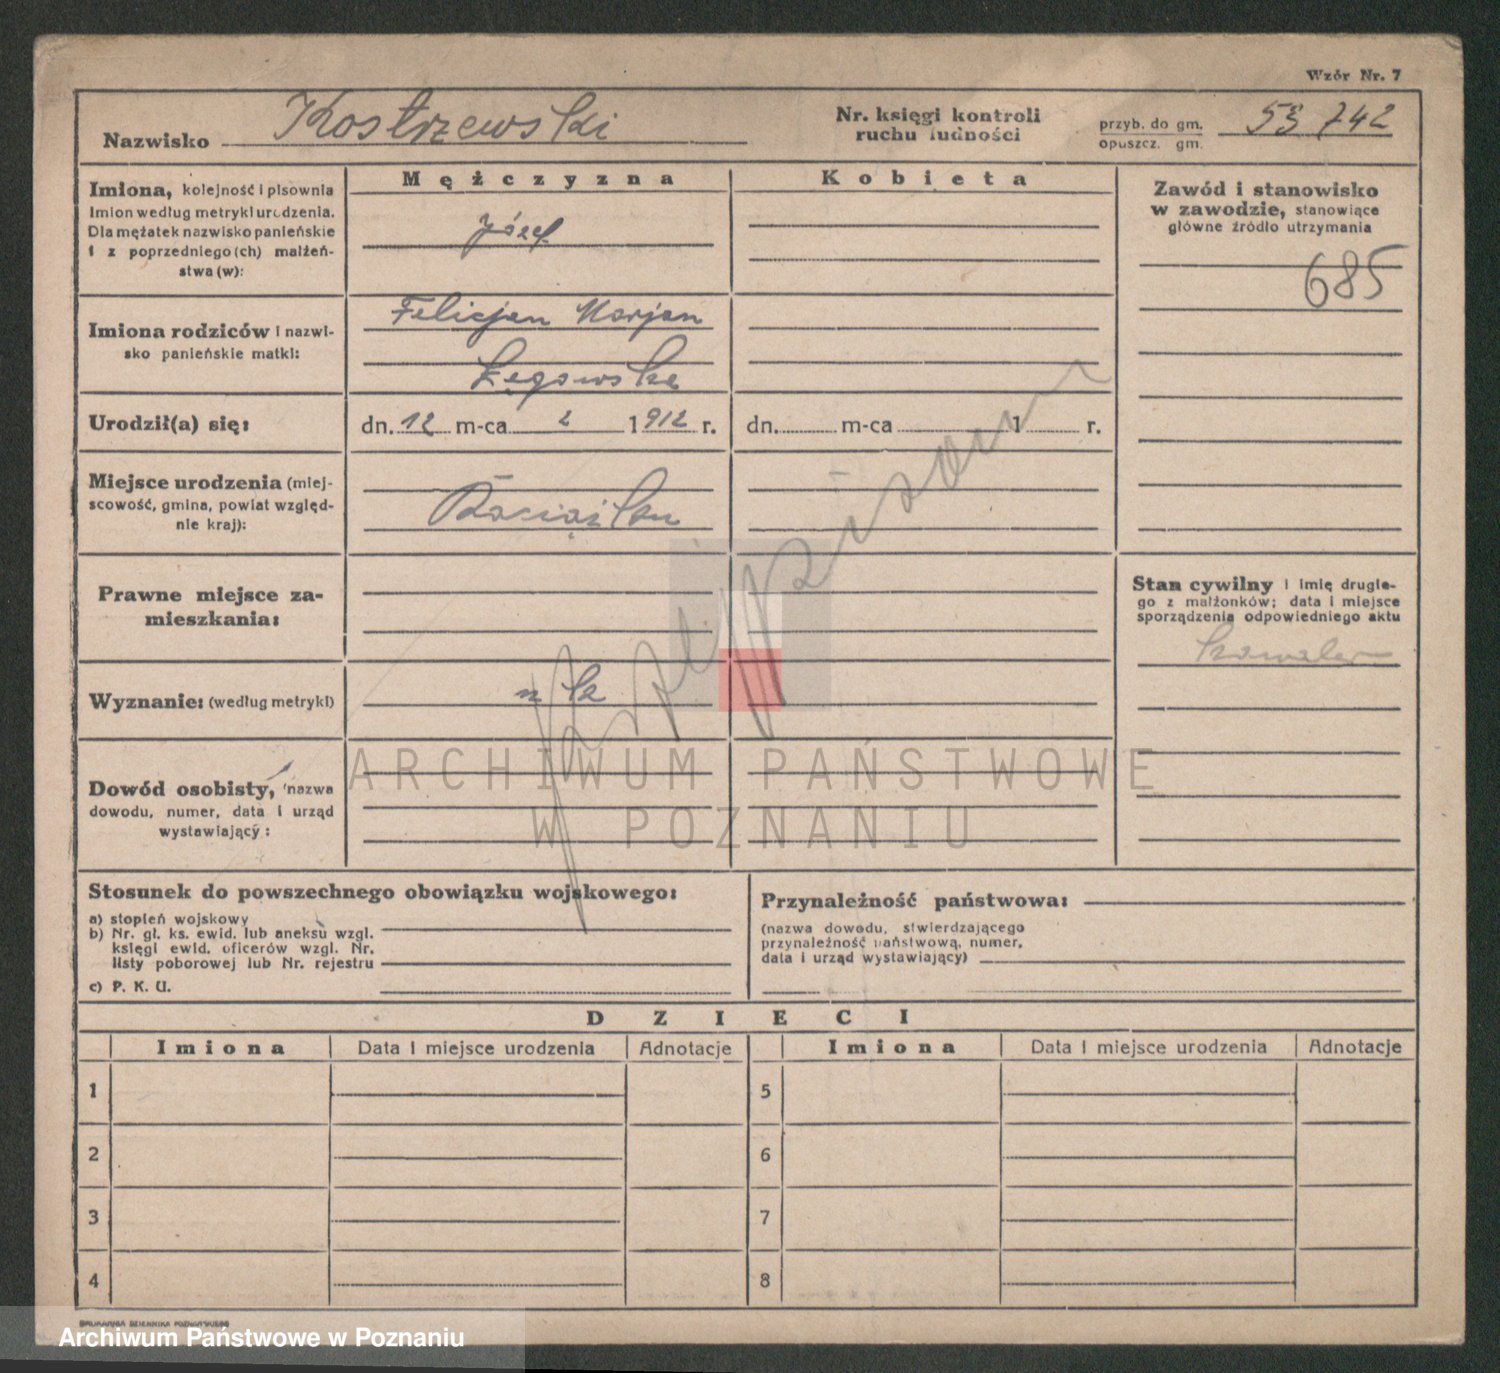 Wzór Nr. 7
Nazwisko Kostrzewski
Nr. księgi kontroli
ruchu ludności
przyb. do gm.
opuszcz. gm.
742
Imiona, kolejność i pisownia
Imion według metryki urodzenia.
Dla mężatek nazwisko panieńskie
i z poprzedniego(ch) małżeń-
stwa(w):
Mężczyzna
Józef
Kobieta
Zawód i stanowisko
w zawodzie, stanowiące
główne źródło utrzymania
685
Imiona rodziców i nazwi-
sko panieńskie matki:
Felicjan Marjan
Łęgowska
Urodził(a) się:
dn. 12 m-ca 2 1912 r.
dn. m-ca 1 r.
Miejsce urodzenia (miej-
scowość, gmina, powiat względ-
nie kraj):
Prawne miejsce za-
mieszkania:
Stan cywilny i imię drugie-
go z małżonków; data i miejsce
sporządzenia odpowiedniego aktu
kawaler
Wyznanie: (według metryki)
Dowód osobisty, nazwa
dowodu, numer, data i urząd
wystawiający:
ARCHIWUM PAŃSTWOWE
W POZNANIU
Stosunek do powszechnego obowiązku wojskowego:
a) stopień wojskowy
b) Nr. gł. ks. ewid. lub aneksu wzgl.
księgi ewid. oficerów wzgl. Nr.
listy poborowej lub Nr. rejestru
c) P. K. U.
Przynależność państwowa:
(nazwa dowodu, stwierdzającego
przynależność państwową, numer,
data i urząd wystawiający)
DZIECI
Imiona Data i miejsce urodzenia Adnotacje Imiona Data i miejsce urodzenia Adnotacje
1 5
2 6
3 7
4 8
DRUKARNIA DZIENNIKA POZNAŃSKIEGO
Archiwum Państwowe w Poznaniu